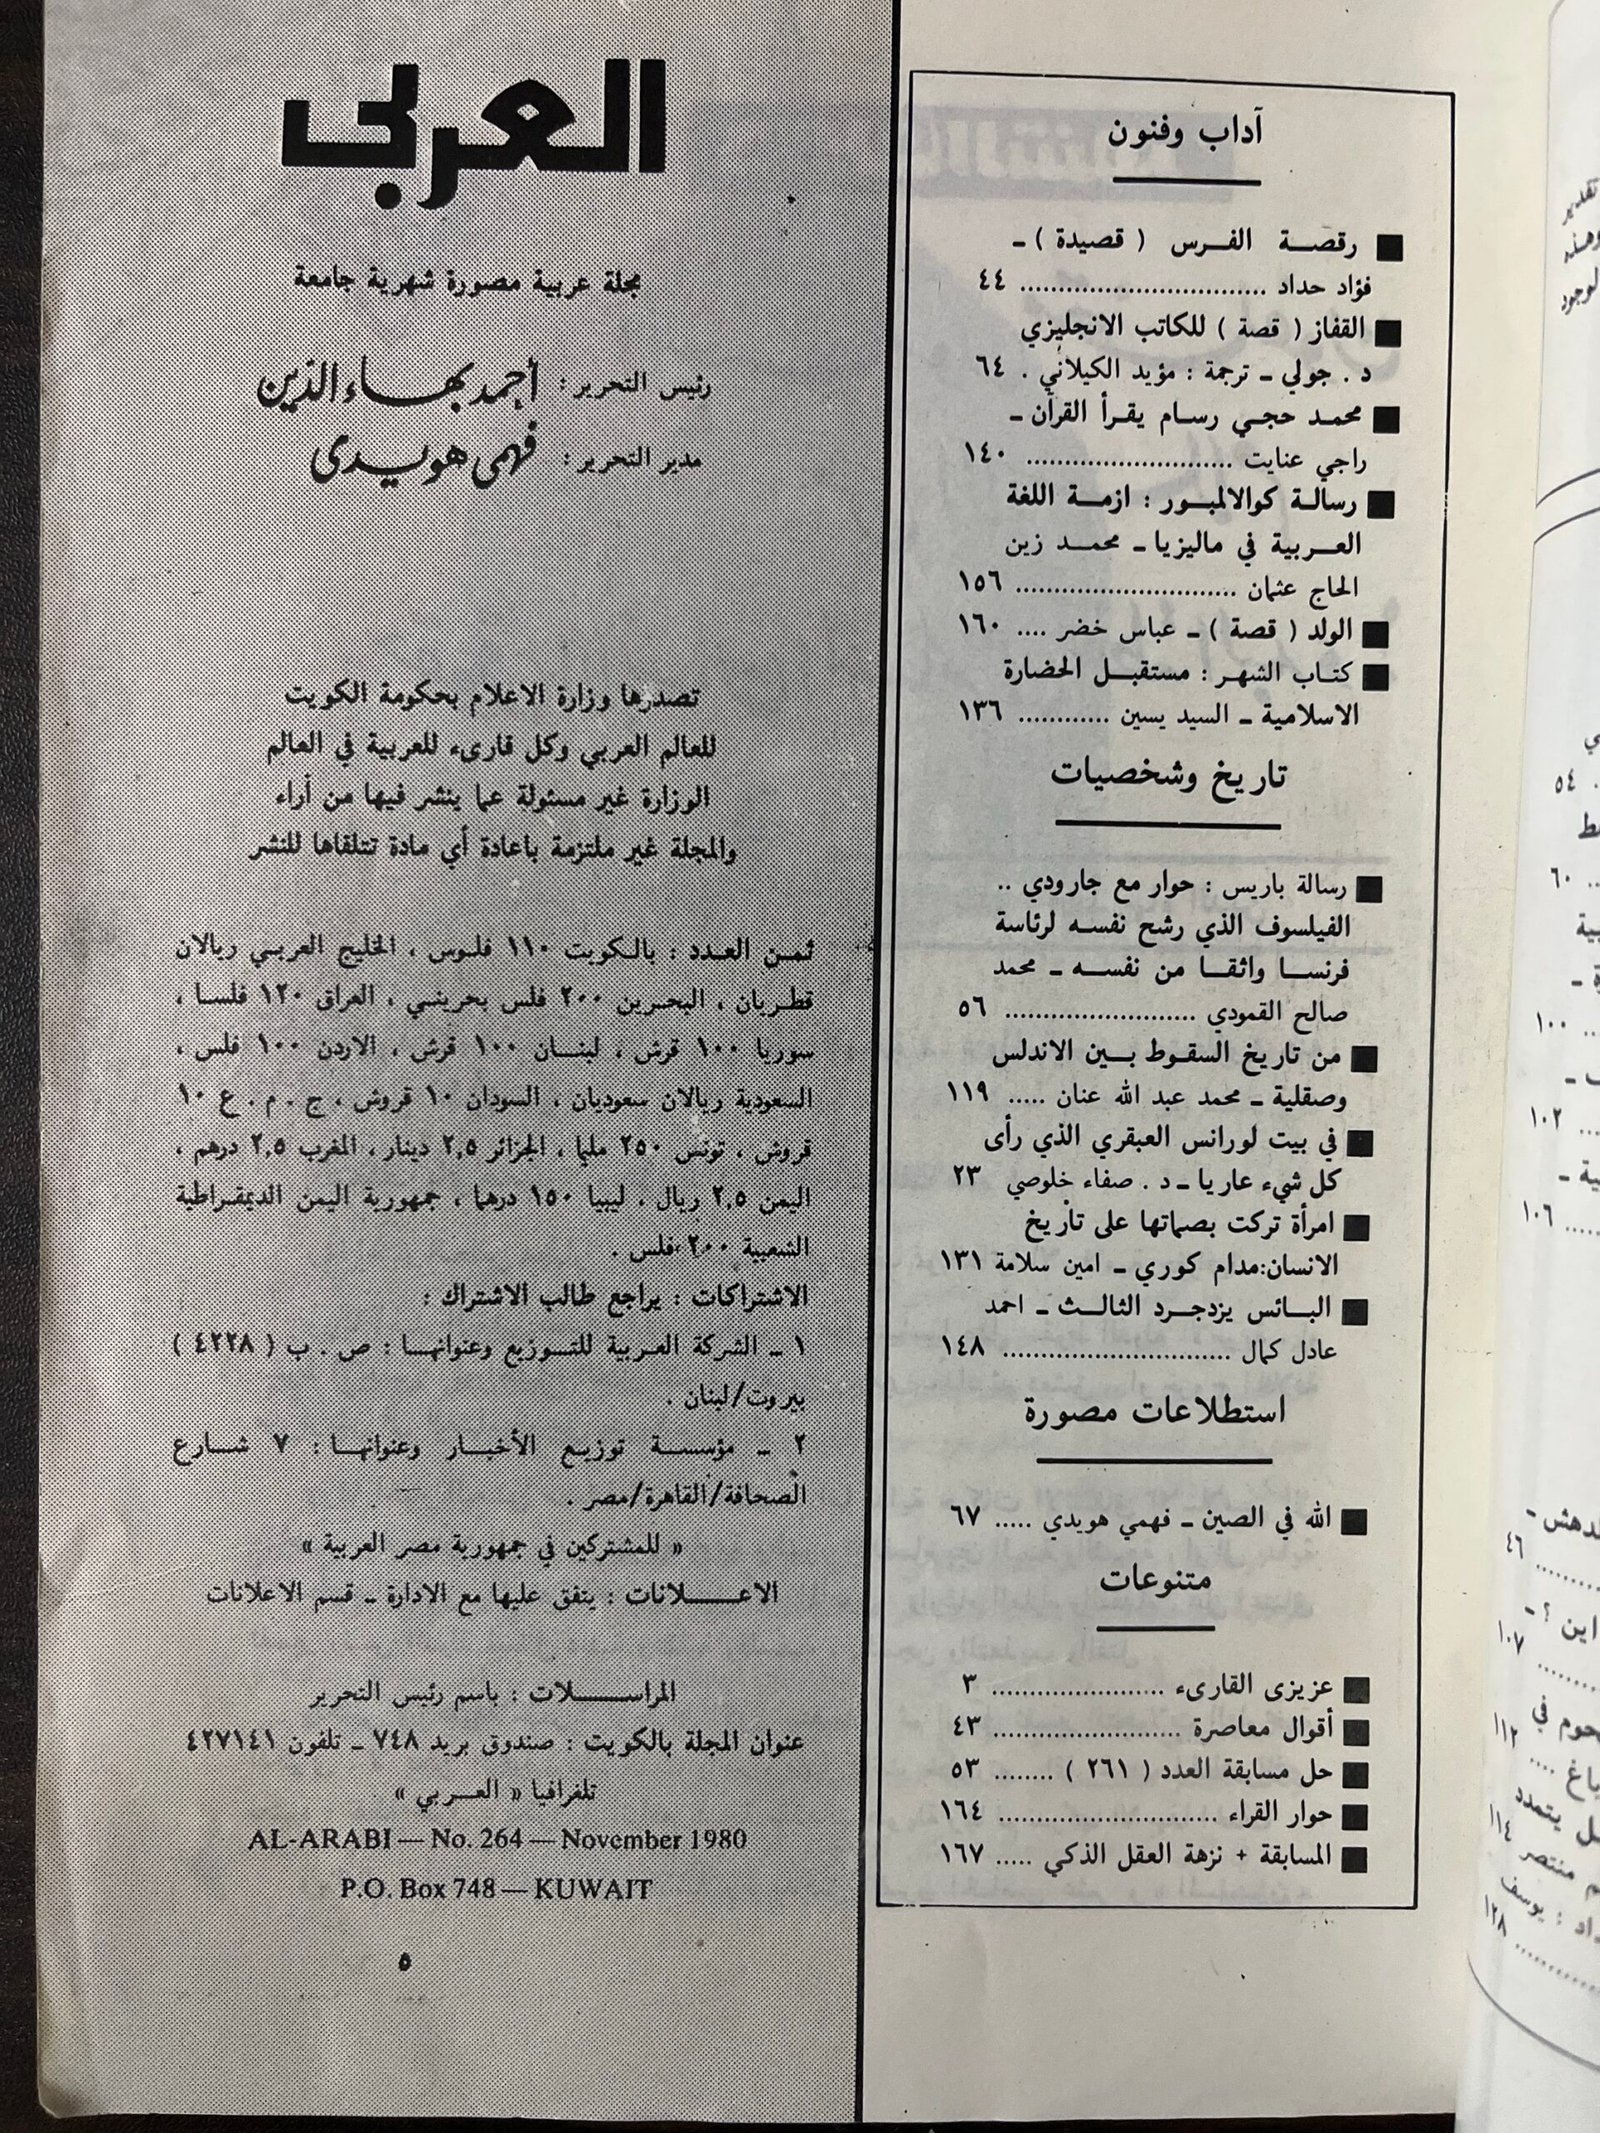 آداب وفنون
رقصة الفرس ( قصيدة ) ـ
فؤاد حداد ................................ ٤٤
القفاز ( قصة ) للكاتب الانجليزي
د . جولي ـ ترجمة : مؤيد الكيلاني . ٦٤
محمد حجي رسام يقرأ القرآن ـ
راجي عنايت ........................... ١٤٠
رسالة كوالالمبور : ازمة اللغة
العربية في ماليزيا ـ محمد زين
الحاج عثمان ............................. ١٥٦
الولد ( قصة ) ـ عباس خضر .... ١٦٠
كتاب الشهر : مستقبل الحضارة
الاسلامية ـ السيد يسين ............ ١٣٦
تاريخ وشخصيات
رسالة باريس : حوار مع جارودي ..
الفيلسوف الذي رشح نفسه لرئاسة
فرنسا واثقا من نفسه ـ محمد
صالح القمودي ......................... ٥٦
من تاريخ السقوط بين الاندلس
وصقلية ـ محمد عبد الله عنان ..... ١١٩
في بيت لورانس العبقري الذي رأى
كل شيء عاريا ـ د . صفاء خلوصي ٢٣
امرأة تركت بصماتها على تاريخ
الانسان:مدام كوري ـ امين سلامة ١٣١
البائس يزدجرد الثالث ـ احمد
عادل كمال .............................. ١٤٨
استطلاعات مصورة
الله في الصين ـ فهمي هويدي ..... ٦٧
متنوعات
عزيزى القارىء ....................... ٣
أقوال معاصرة ......................... ٤٣
حل مسابقة العدد ( ٢٦١ ) ........ ٥٣
حوار القراء ............................. ١٦٤
المسابقة + نزهة العقل الذكي ..... ١٦٧
العربي
مجلة عربية مصورة شهرية جامعة
رئيس التحرير : أحمد بهاء الدين
مدير التحرير : فهمى هويدى
تصدرها وزارة الاعلام بحكومة الكويت
للعالم العربي وكل قارىء للعربية في العالم
الوزارة غير مسئولة عما ينشر فيها من أراء
والمجلة غير ملتزمة باعادة أي مادة تتلقاها للنشر
ثمن العدد : بالكويت ١١٠ فلوس ، الخليج العربي ريالان
قطريان ، البحرين ٢٠٠ فلس بحريني ، العراق ١٢٠ فلسا ،
سوريا ١٠٠ قرش ، لبنان ١٠٠ قرش ، الاردن ١٠٠ فلس ،
السعودية ريالان سعوديان ، السودان ١٠ قروش ، ج . م . ع ١٠
قروش ، تونس ٢٥٠ مليما ، الجزائر ٢,٥ دينار ، المغرب ٢,٥ درهم ،
اليمن ٢,٥ ريال ، ليبيا ١٥٠ درهما ، جمهورية اليمن الديمقراطية
الشعبية ٢٠٠ فلس .
الاشتراكات : يراجع طالب الاشتراك :
١ ـ الشركة العربية للتوزيع وعنوانها : ص . ب ( ٤٢٢٨ )
بيروت/لبنان .
٢ ـ مؤسسة توزيع الأخبار وعنوانها : ٧ شارع
الصحافة/القاهرة/مصر .
« للمشتركين في جمهورية مصر العربية »
الاعلانات : يتفق عليها مع الادارة ـ قسم الاعلانات
المراسلات : باسم رئيس التحرير
عنوان المجلة بالكويت : صندوق بريد ٧٤٨ ـ تلفون ٤٢٧١٤١
تلغرافيا « العربي »
AL-ARABI — No. 264 — November 1980
P.O. Box 748 — KUWAIT
٥
تقدير
وهذه
٥٤
٦٠
١٠٠
١٠٢
١٠٦
٤٦
اين ؟ ـ
١٠٧
١١٢
يتمدد
منتصر ١١٤
يوسف
١٢٨